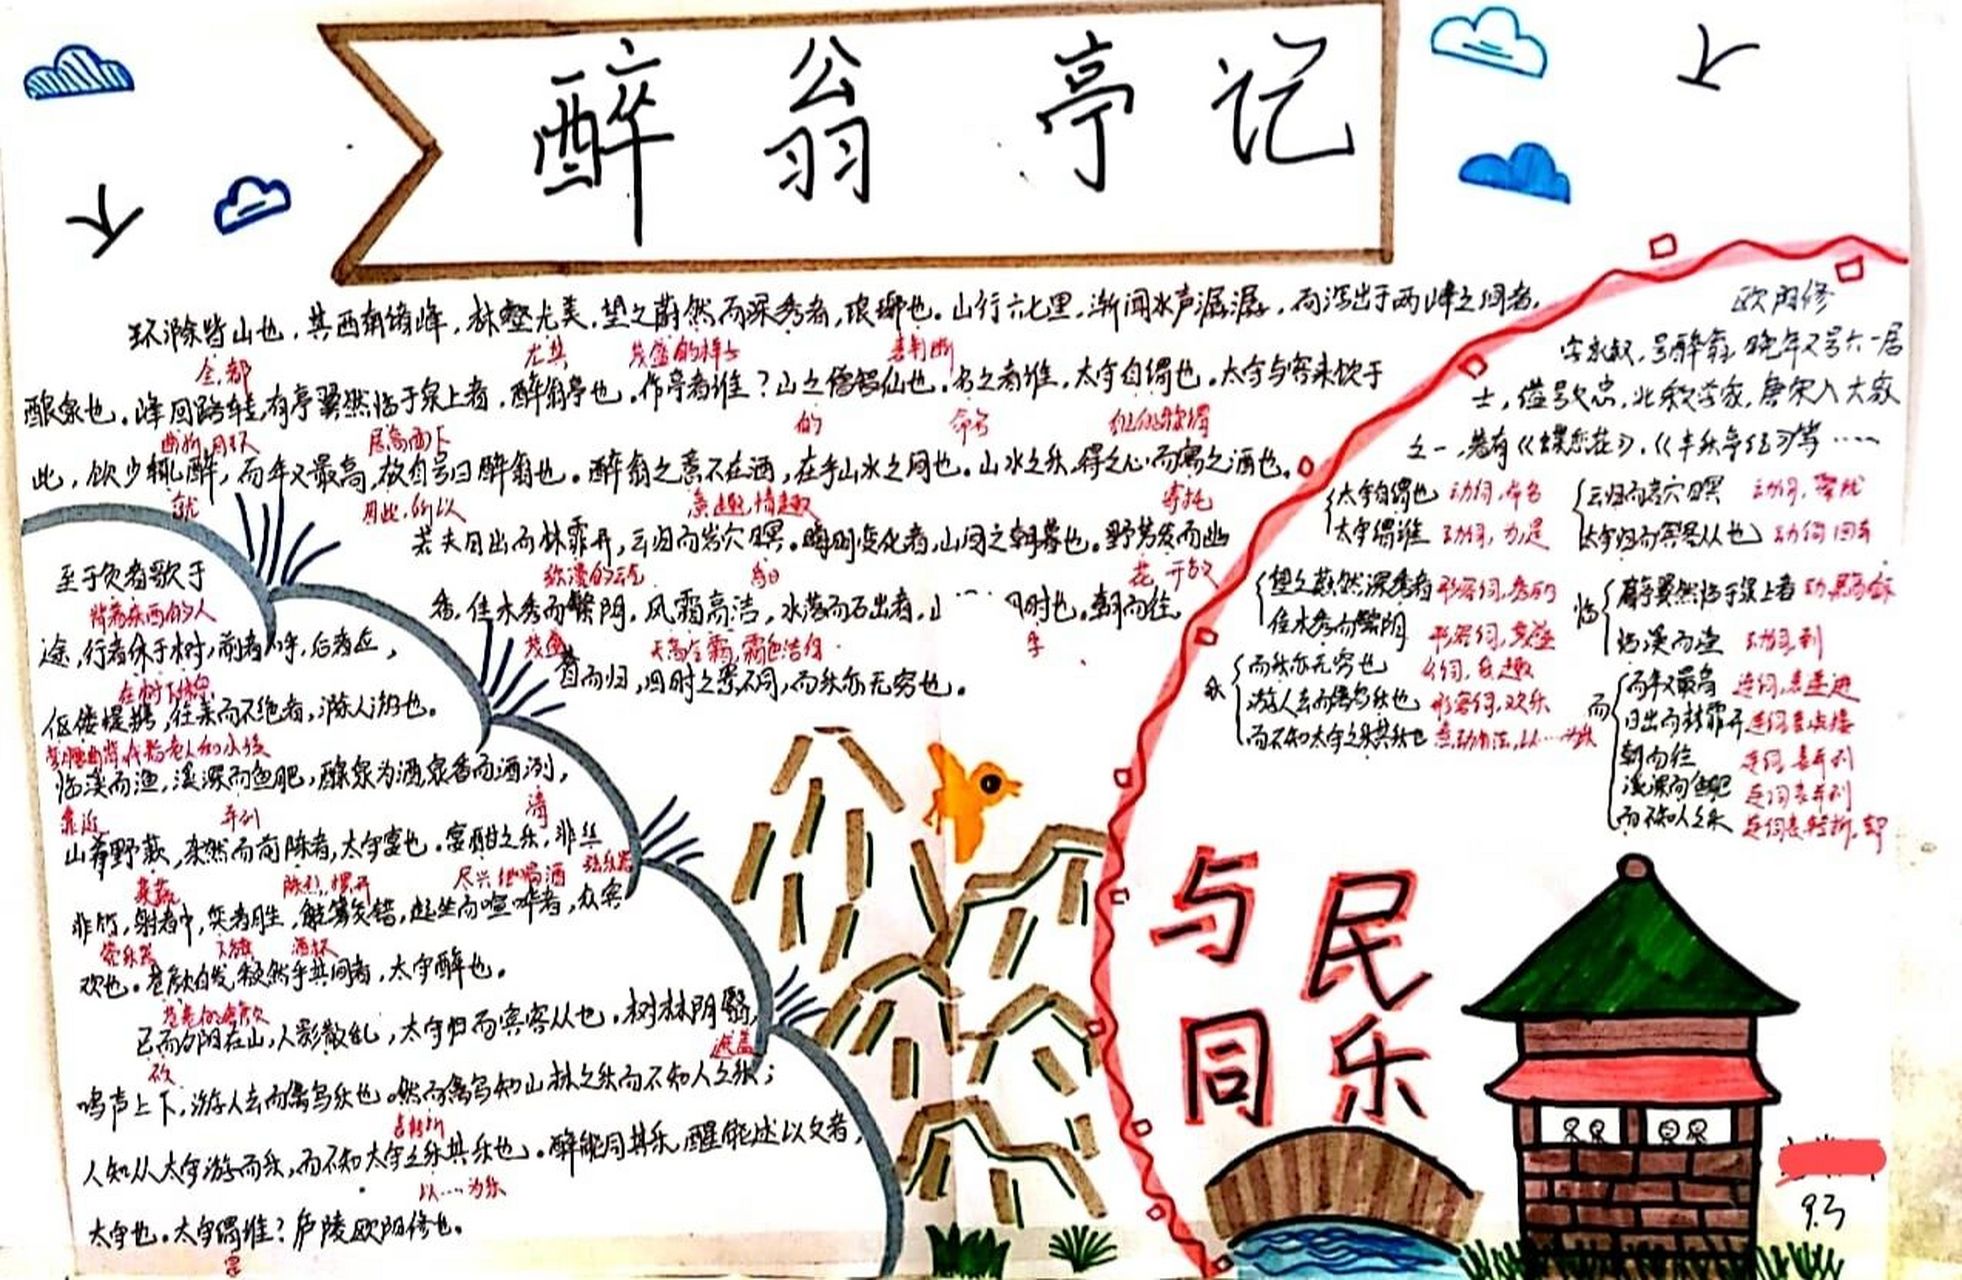 醉翁亭记
环滁皆山也，其西南诸峰，林壑尤美，望之蔚然而深秀者，琅琊也。山行六七里，渐闻水声潺潺，而泻出于两峰之间者，
全，都 尤其 茂盛的样子 表判断
酿泉也。峰回路转，有亭翼然临于泉上者，醉翁亭也。作亭者谁？山之僧智仙也。名之者谁，太守自谓也。太守与客来饮于
居高面下 的 命名
此，饮少辄醉，而年又最高，故自号曰醉翁也。醉翁之意不在酒，在乎山水之间也。山水之乐，得之心而寓之酒也。
就 因此，所以 意趣，情趣 寄托
若夫日出而林霏开，云归而岩穴暝。晦明变化者，山间之朝暮也。野芳发而幽
弥漫的云气 花 开放
香，佳木秀而繁阴，风霜高洁，水落而石出者，山 时也。朝而往，
茂盛
暮而归，四时之景不同，而乐亦无穷也。
至于负者歌于
背着东西的人
途，行者休于树，前者呼，后者应，
在树下休息
伛偻提携，往来而不绝者，滁人游也。
临溪而渔，溪深而鱼肥，酿泉为酒，泉香而酒洌，
靠近 清
山肴野蔌，杂然而前陈者，太守宴也。宴酣之乐，非丝
菜蔬 陈列，摆开 尽兴地喝酒 弦乐器
非竹，射者中，奕者胜，觥筹交错，起坐而喧哗者，众宾
管乐器 下棋 酒杯
欢也。苍颜白发，颓然乎其间者，太守醉也。
苍老的容颜
已而夕阳在山，人影散乱，太守归而宾客从也。树林阴翳，
遮盖
鸣声上下，游人去而禽鸟乐也。然而禽鸟知山林之乐而不知人之乐；
表转折
人知从太守游而乐，而不知太守之乐其乐也。醉能同其乐，醒能述以文者，
以…为乐
太守也。太守谓谁？庐陵欧阳修也。
是
欧阳修
字永叔，号醉翁，晚年又号六一居
士，谥号文忠，北宋文学家，唐宋八大家
之一，著有《蝶恋花》，《丰乐亭记》等……
太守自谓也 动词，命名
太守谓谁 动词，为，是
云归而岩穴暝 动词，聚拢
太守归而宾客从也 动词 回去
望之蔚然深秀者 形容词，秀丽
佳木秀而繁阴 形容词，茂盛
临
有亭翼然临于泉上者
临溪而渔 动词，到
乐
而乐亦无穷也 名词，乐趣
游人去而禽鸟乐也 形容词，欢乐
而不知太守之乐其乐也 意动用法，以…为乐
而
而年又最高 连词，表递进
日出而林霏开 连词表承接
朝而往
溪深而鱼肥 连词表并列
而不知人之乐 连词表转折，却
与民
同乐
9.3